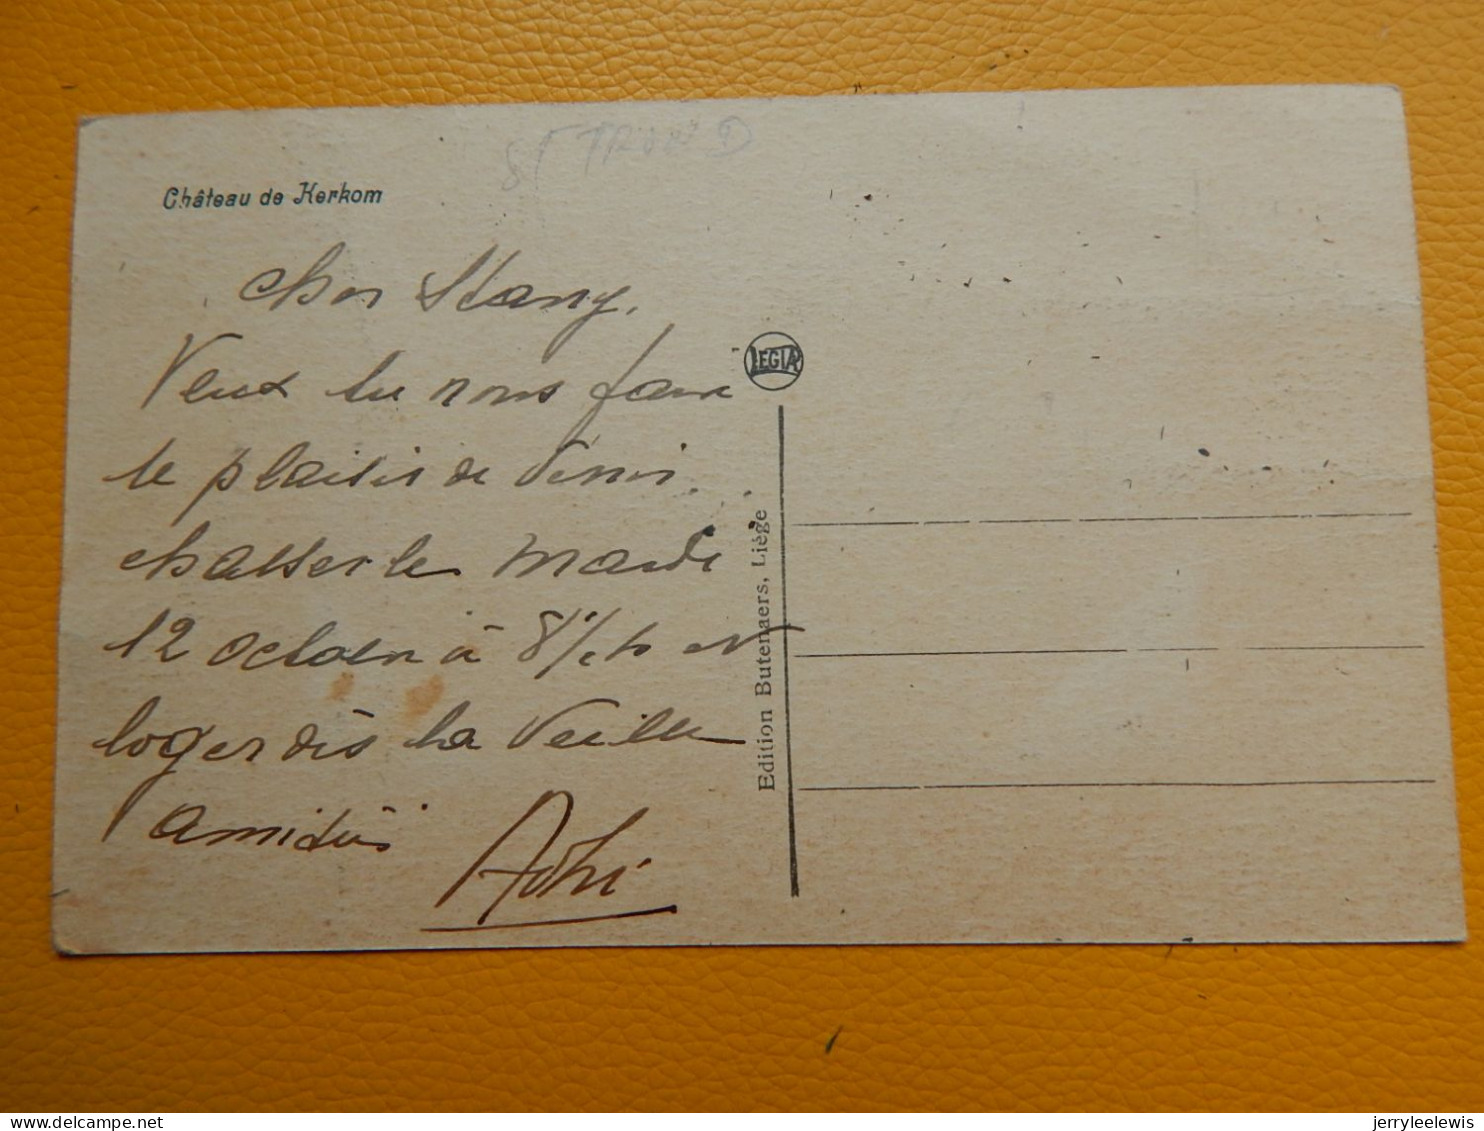 ST TROND
Château de Kerkom
Cher Stany,
Veux tu nous faire
le plaisir de venir
chasser le mardi
12 octobre à 8 1/2 h et
loger dès la veille
amitiés
LEGIA
Edition Butenaers, Liège
jerryleelewis